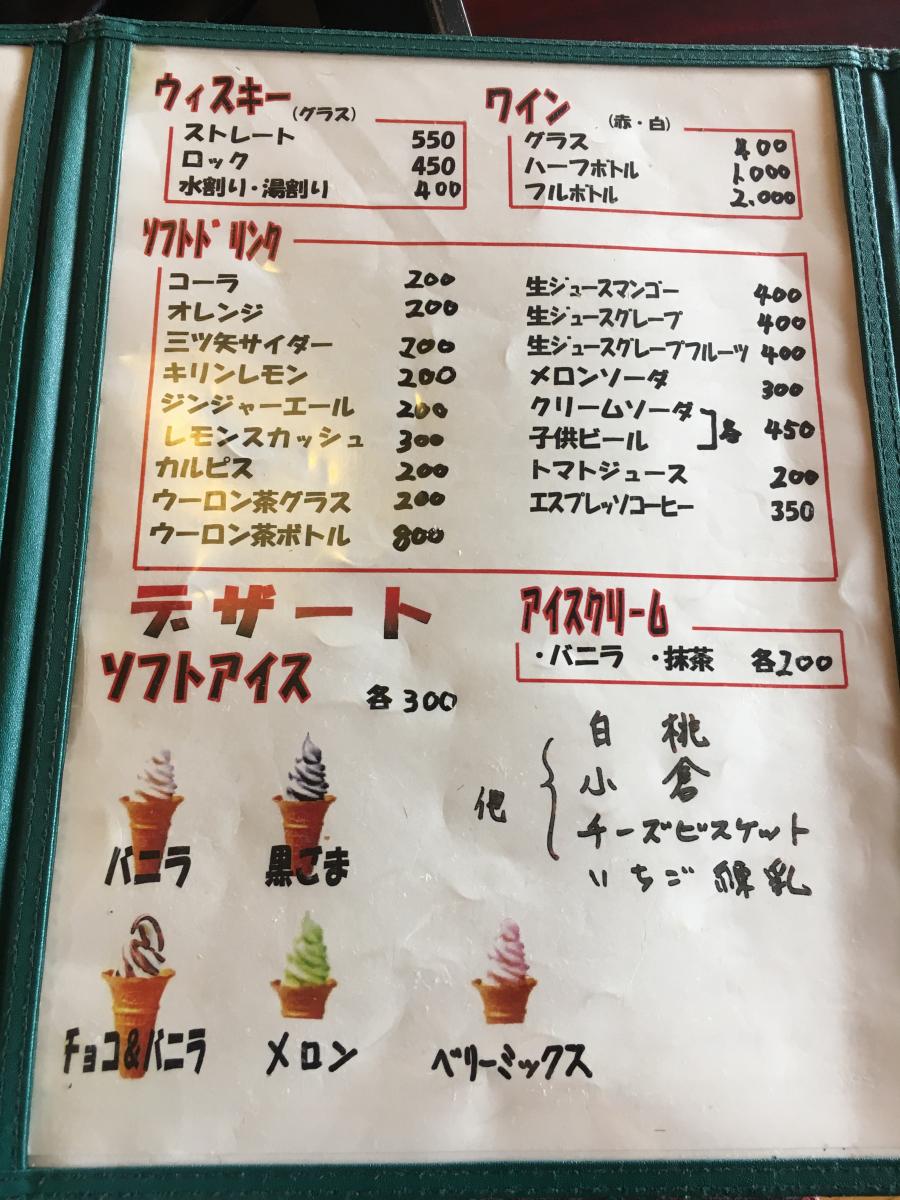 ウィスキー (グラス)
ストレート 550
ロック 450
水割り・湯割り 400
ワイン (赤・白)
グラス 400
ハーフボトル 1.000
フルボトル 2.000
ソフトドリンク
コーラ 200
オレンジ 200
三ツ矢サイダー 200
キリンレモン 200
ジンジャーエール 200
レモンスカッシュ 300
カルピス 200
ウーロン茶グラス 200
ウーロン茶ボトル 800
生ジュースマンゴー 400
生ジュースグレープ 400
生ジュースグレープフルーツ 400
メロンソーダ 300
クリームソーダ
子供ビール 各 450
トマトジュース 200
エスプレッソコーヒー 350
デザート
ソフトアイス 各300
アイスクリーム
・バニラ ・抹茶 各200
他
白桃
小倉
チーズビスケット
いちご練乳
バニラ
黒ごま
チョコ&バニラ
メロン
ベリーミックス